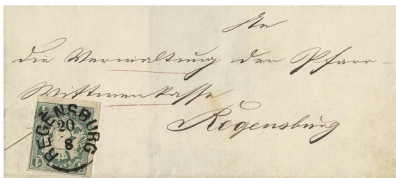 An
die Verwaltung der Pfarr-
Wittwenkasse
Regensburg
REGENSBURG
20
8